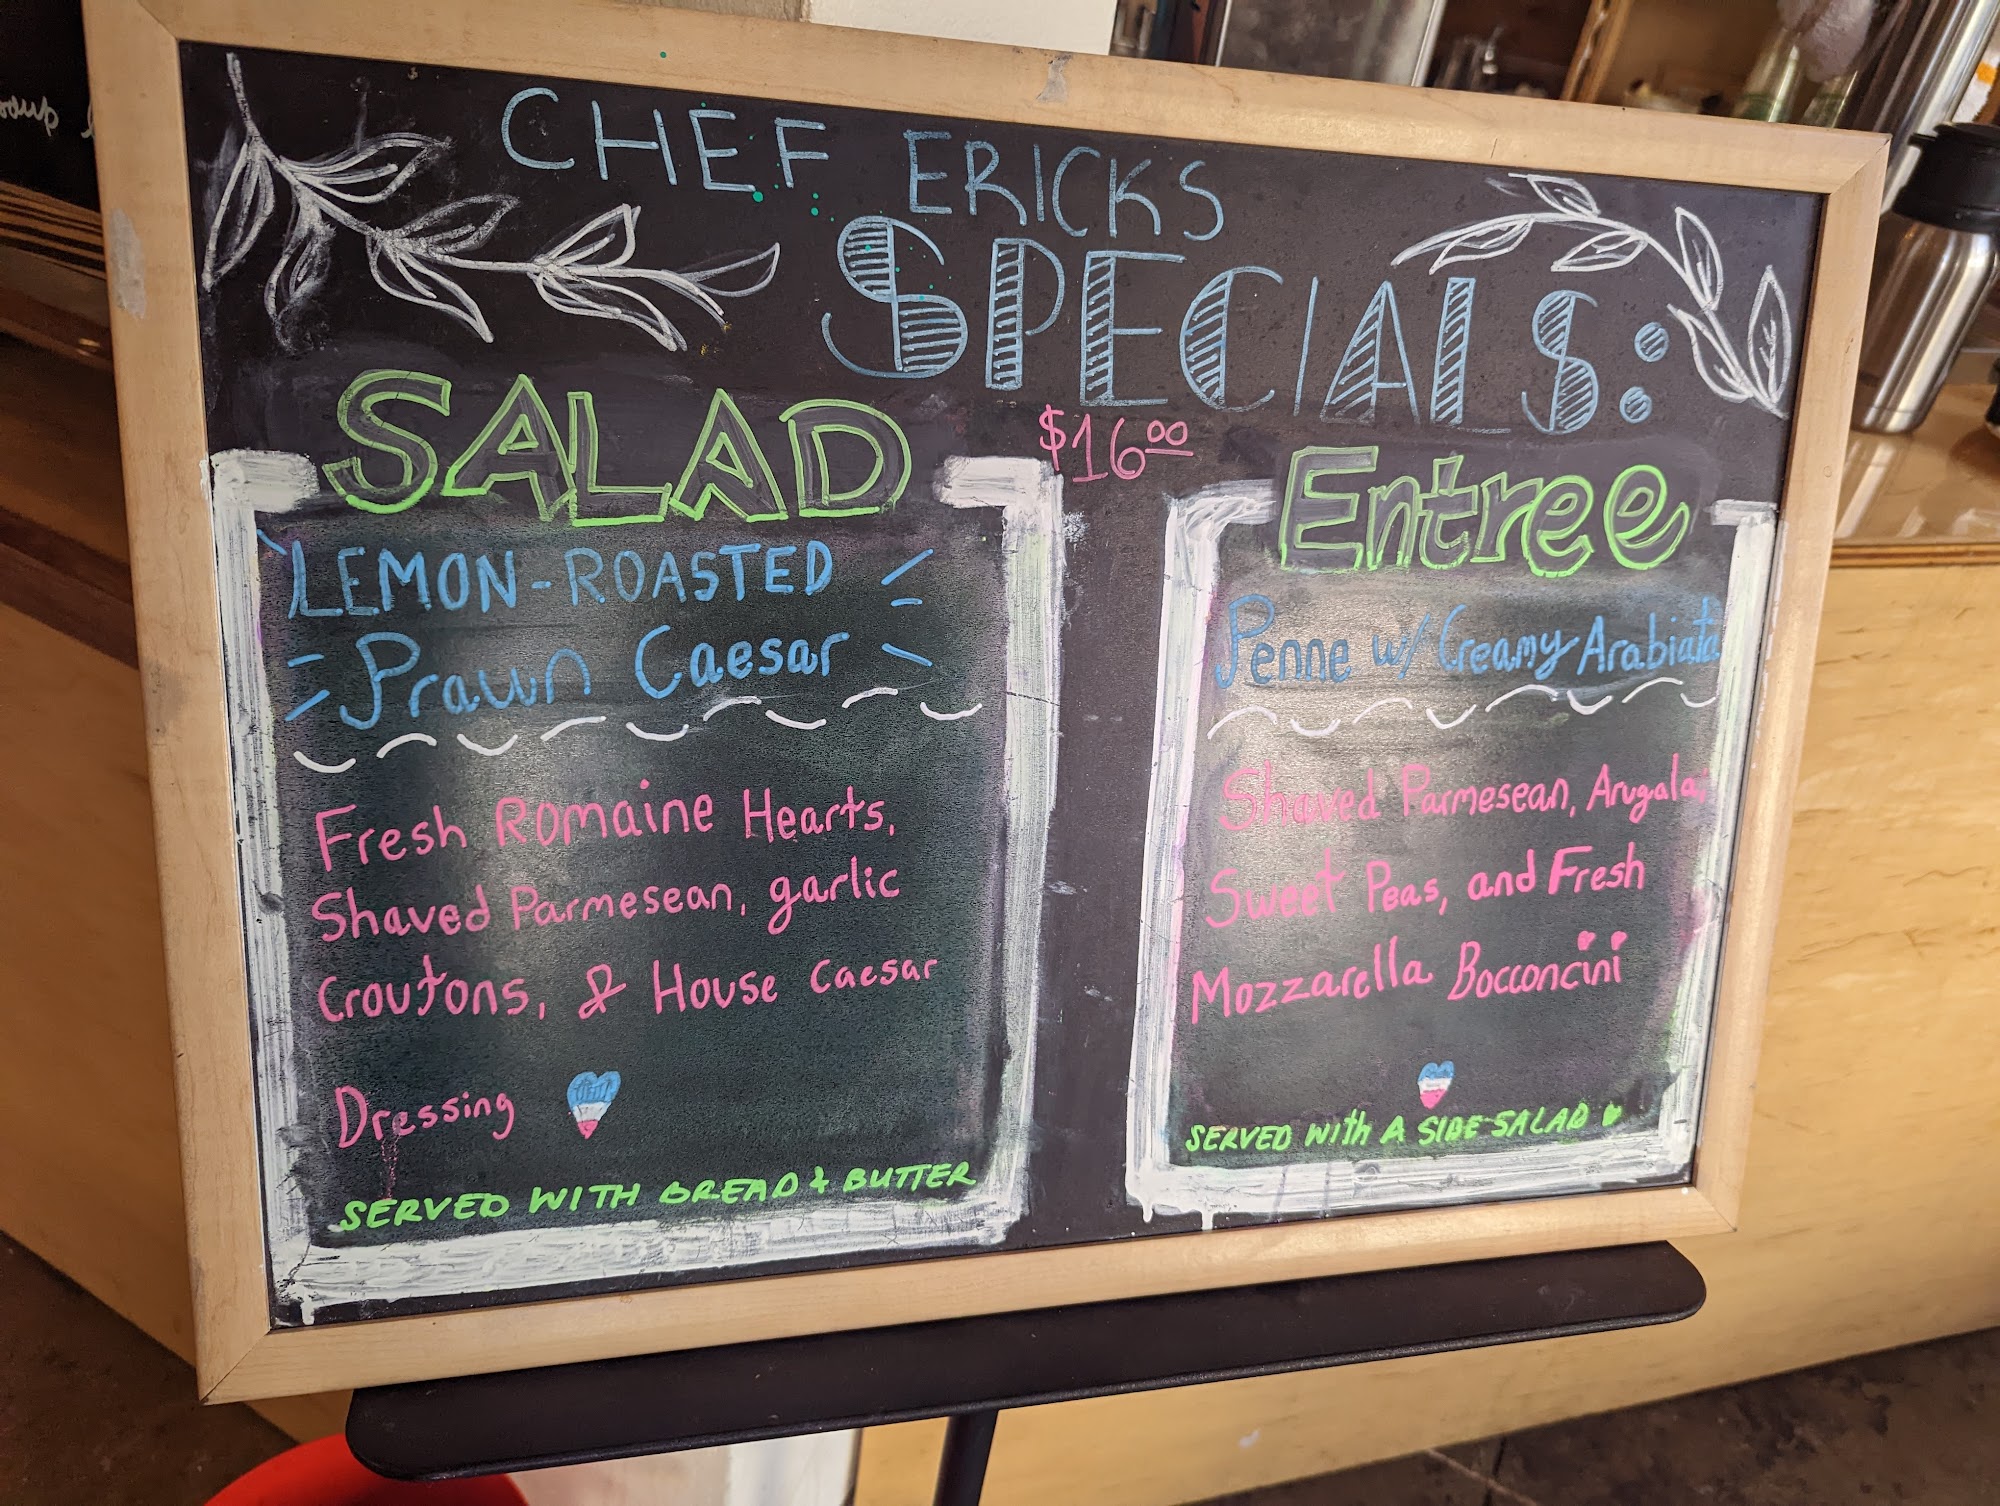 CHEF ERICK'S
SPECIALS:
$16.00
SALAD
LEMON-ROASTED
Prawn Caesar
Fresh Romaine Hearts,
Shaved Parmesean, garlic
Croutons, & House Caesar
Dressing
SERVED WITH BREAD & BUTTER
Entree
Penne w/ Creamy Arabiata
Shaved Parmesean, Arugala,
Sweet Peas, and Fresh
Mozzarella Bocconcini
SERVED with A SIDE SALAD